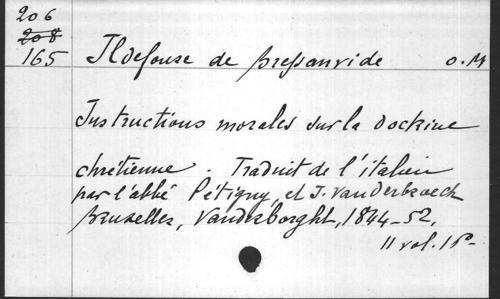 206
208
165 Ildefonse de Bressanvide O.M
Instructions morales sur la doctrine
chrétienne. Traduit de l'italien
par l'abbé Pétigny, et J. Vanderbroeck
Bruxelles, Vanderborght, 1844-52,
11 vol. 18º-